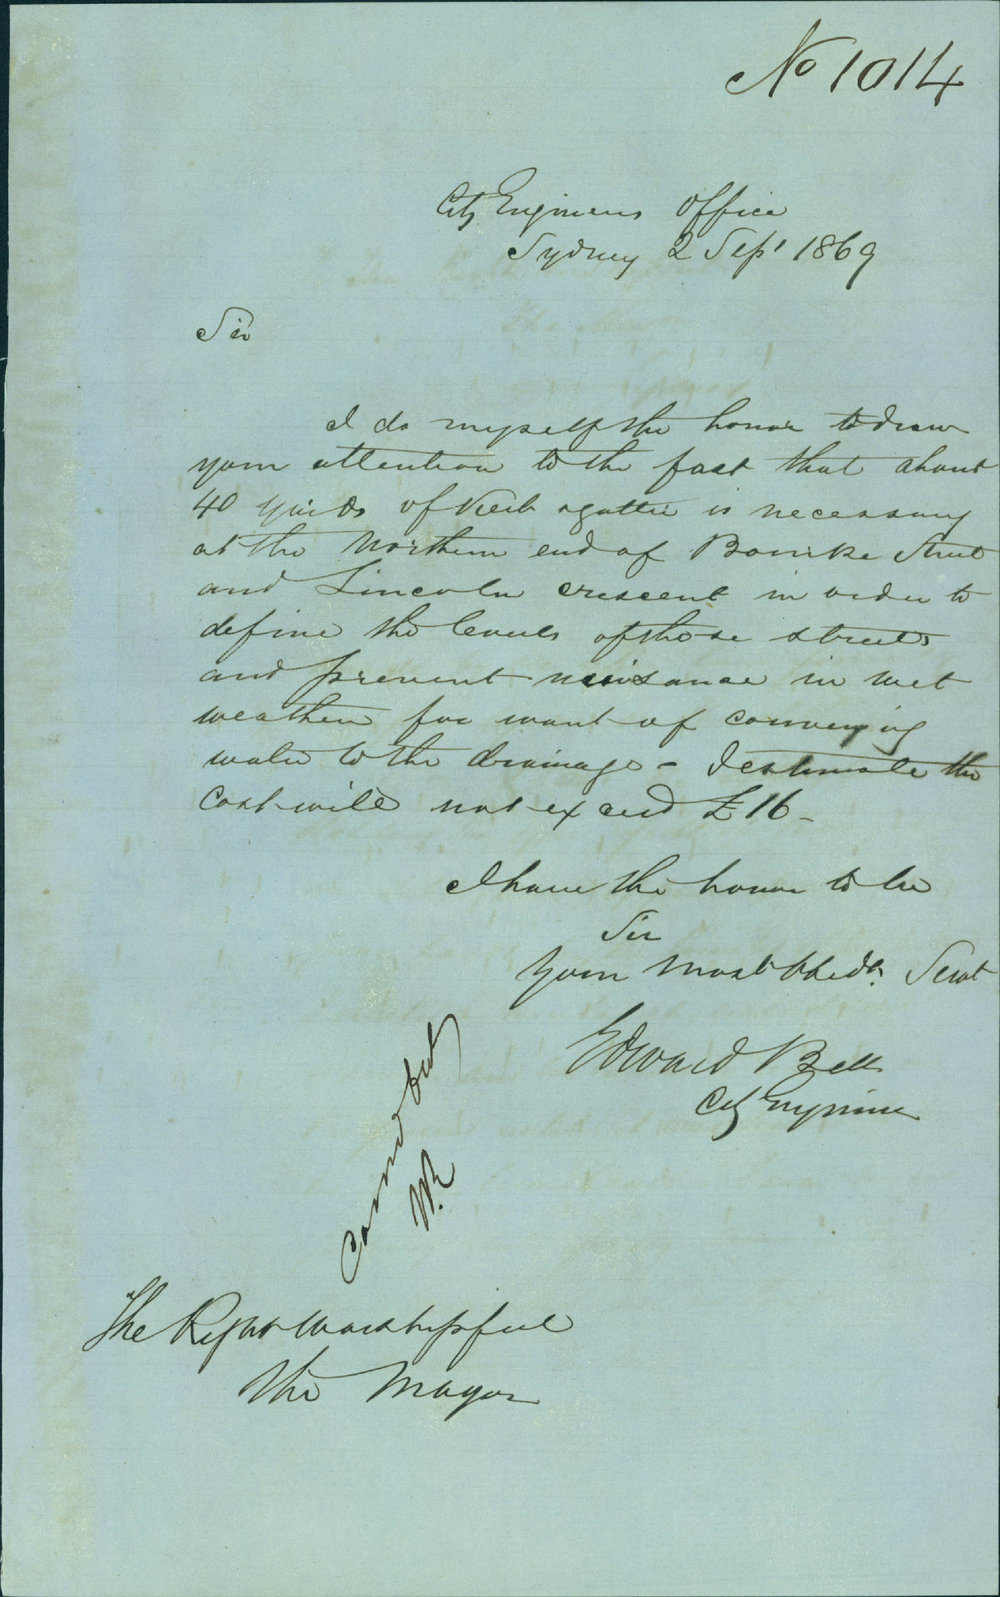 No 1014
City Engineers Office
Sydney 2 Sept 1869
Sir
I do myself the honor to draw
your attention to the fact that about
40 yards of Kerb & gutter is necessary
at the Northern end of Bourke Street
and Lincoln crescent in order to
define the levels of those streets
and prevent nuisance in wet
weather for want of conveying
water to the drainage - I estimate the
cost will not exceed £16 -
I have the honor to be
Sir
Your most Obedt. Servt
Edward Bell
City Engineer
W.R.
The Right Worshipful
The Mayor